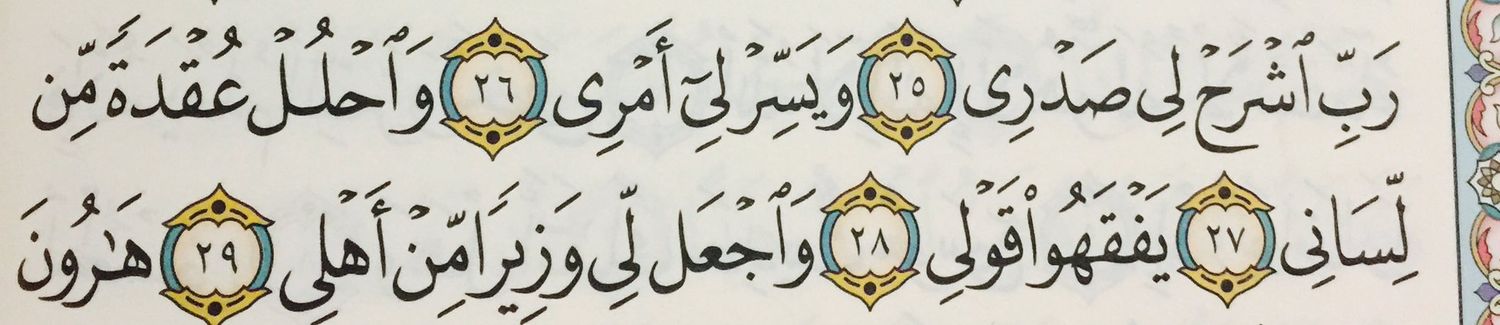 رَبِّ ٱشْرَحْ لِى صَدْرِى ٢٥ وَيَسِّرْ لِىٓ أَمْرِى ٢٦ وَٱحْلُلْ عُقْدَةً مِّن
لِّسَانِى ٢٧ يَفْقَهُوا۟ قَوْلِى ٢٨ وَٱجْعَل لِّى وَزِيرًا مِّنْ أَهْلِى ٢٩ هَـٰرُونَ